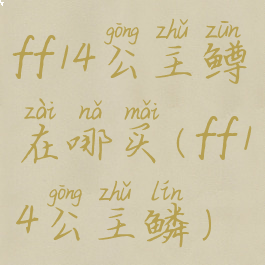 gōng zhǔ zūn
ff14公主鳟
zài nǎ mǎi
在哪买(ff1
gōng zhǔ lín
4公主鳞)